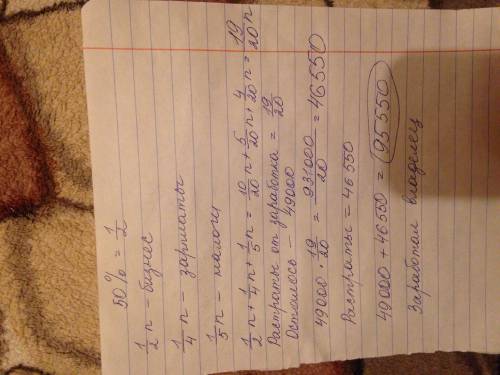 50% = 1/2
1/2 n - бизнес
1/4 n - зарплаты
1/5 n - налоги
1/2 n + 1/4 n + 1/5 n = 10/20 n + 5/20 n + 4/20 n = 19/20 n
Растраты от заработка = 19/20
Осталось - 49000
49000 · 19/20 = 931000/20 = 46550
Растраты = 46550
49000 + 46550 = 95550
Заработал владелец